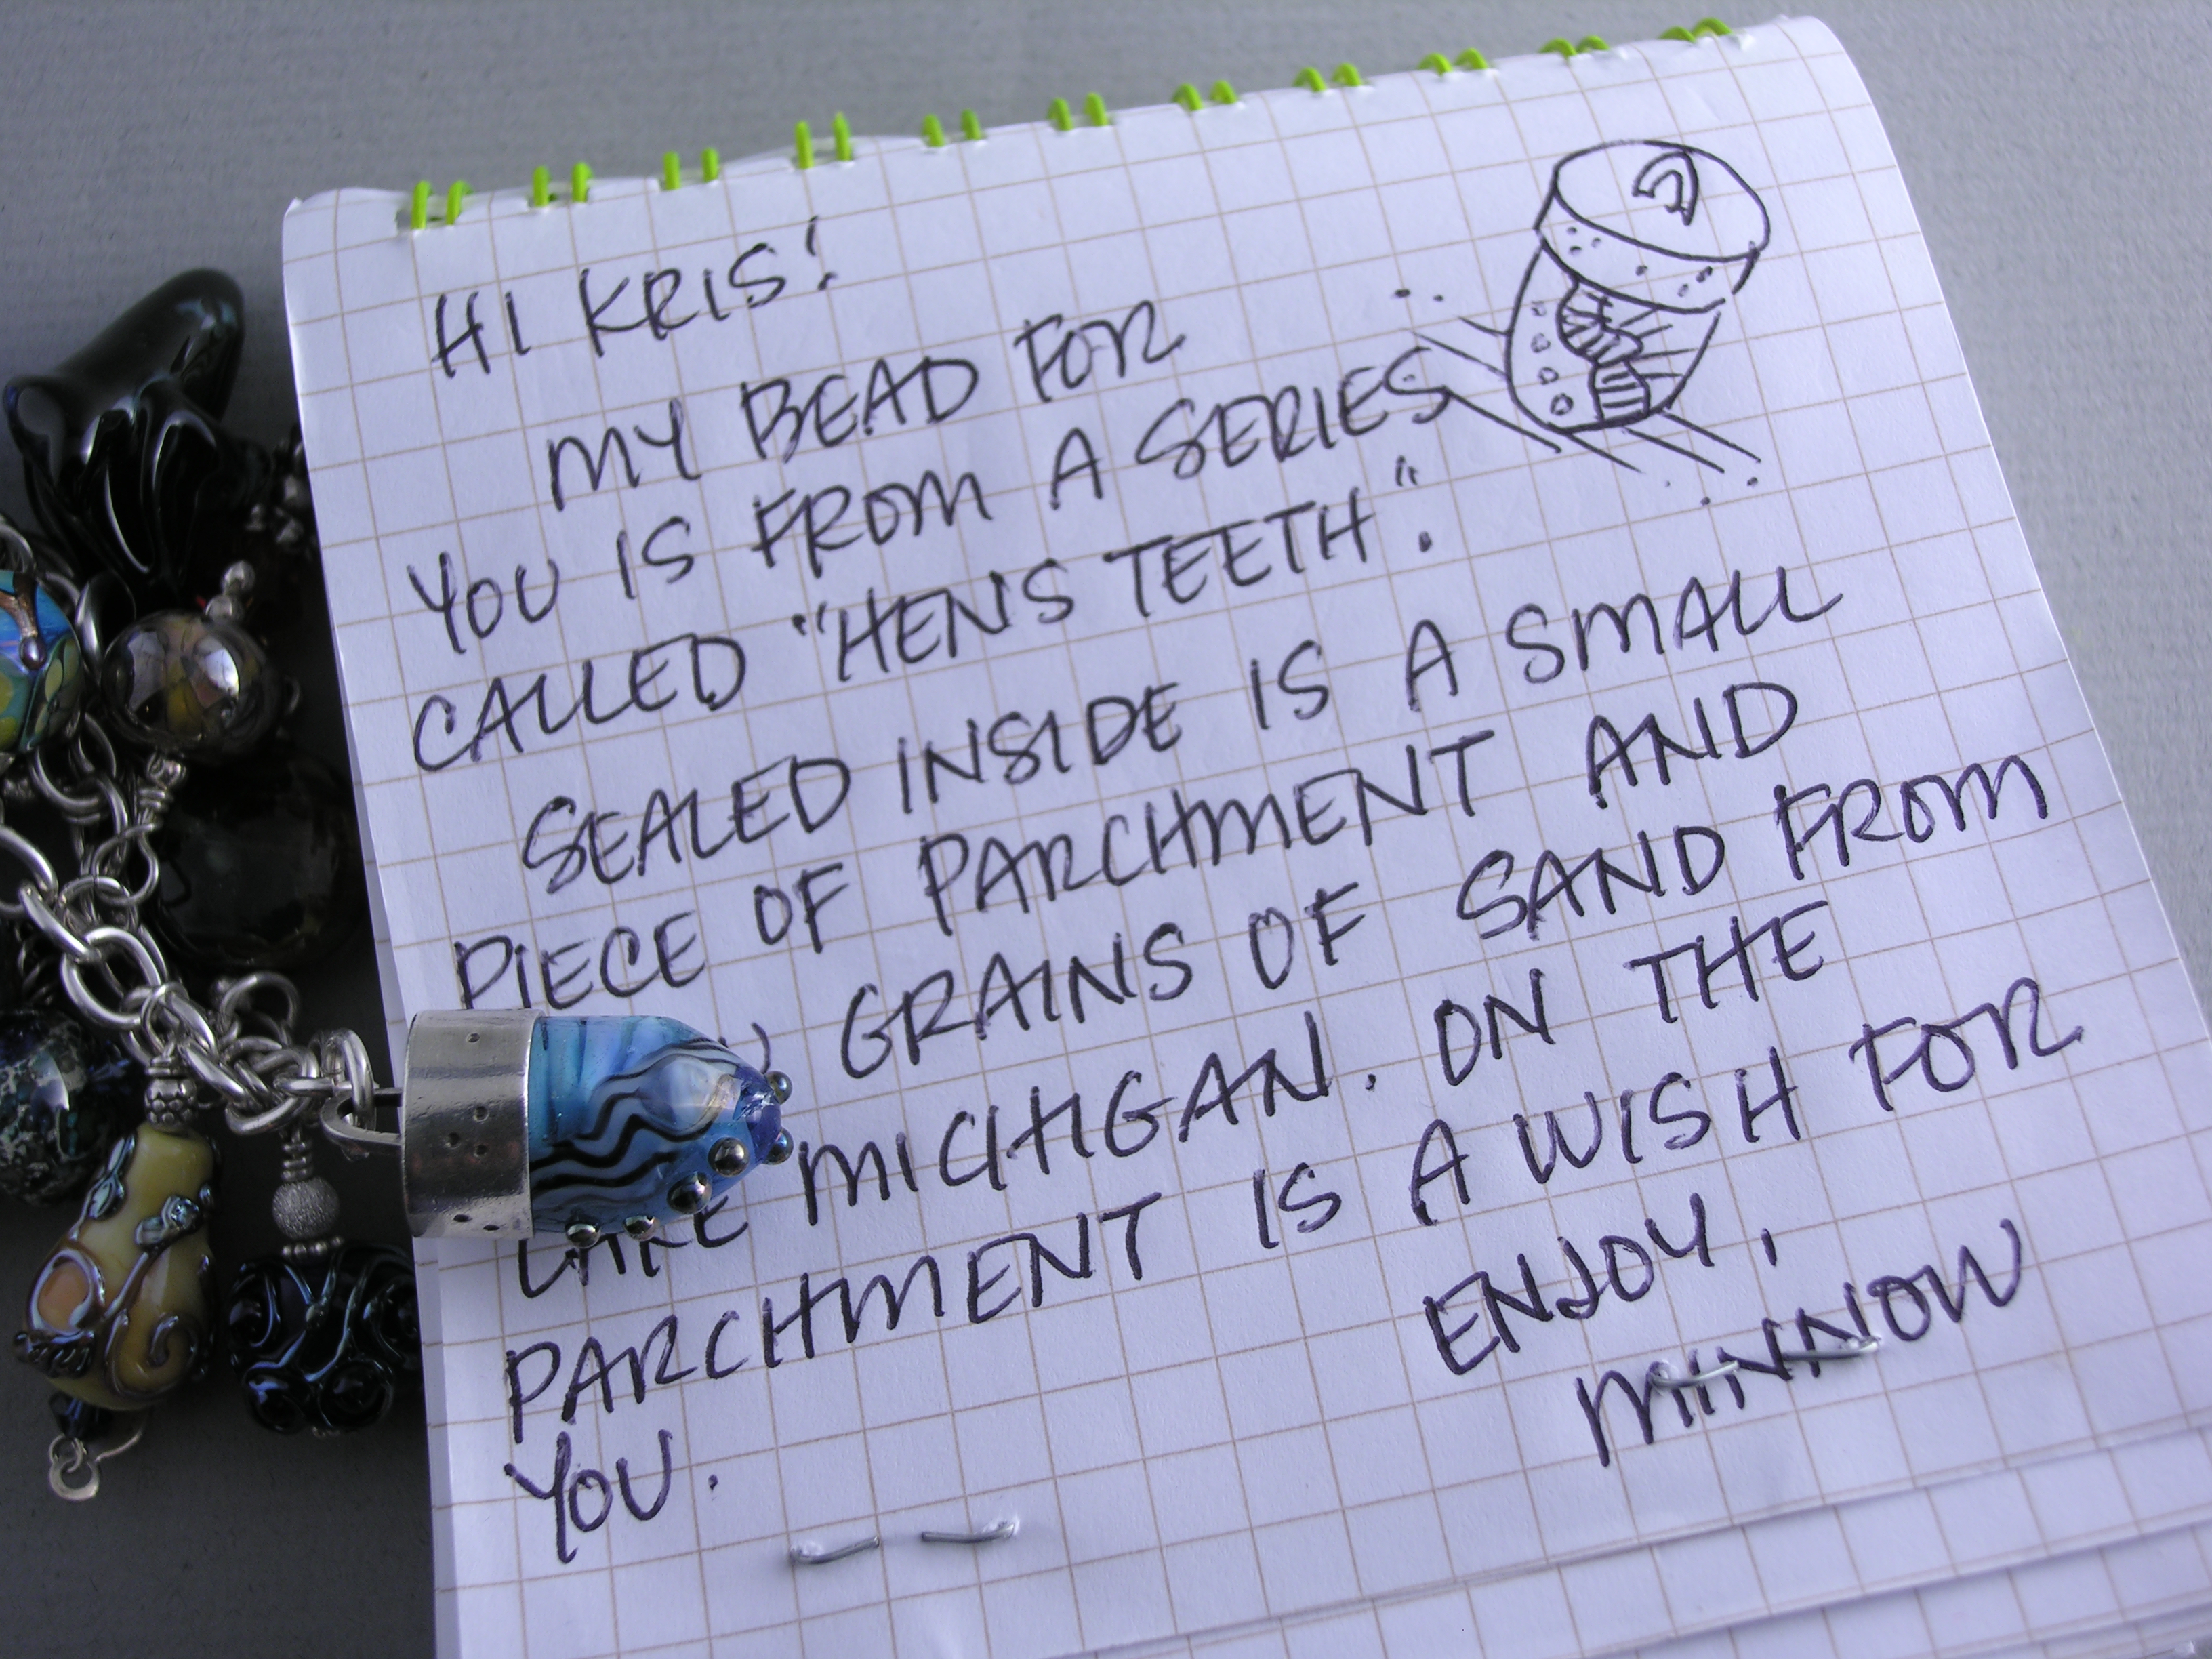 HI KRIS!
MY BEAD FOR
YOU IS FROM A SERIES
CALLED "HEN'S TEETH".
SEALED INSIDE IS A SMALL
PIECE OF PARCHMENT AND
GRAINS OF SAND FROM
LAKE MICHIGAN. ON THE
PARCHMENT IS A WISH FOR
YOU.
ENJOY,
MINNOW